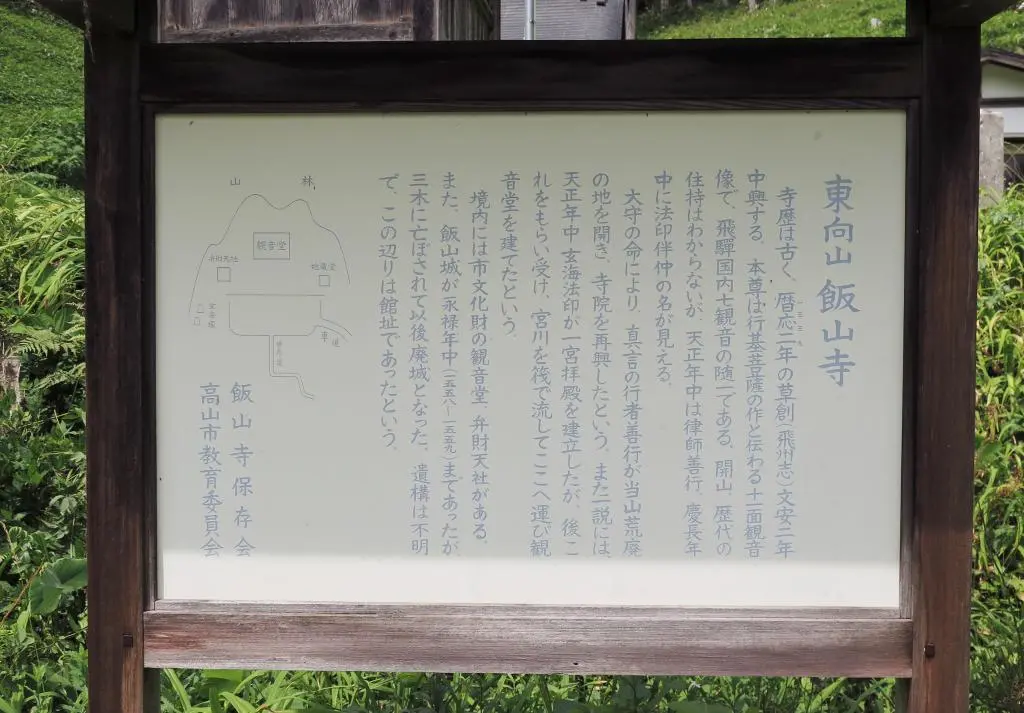 東向山 飯山寺
寺歴は古く、暦応二年の草創(飛州志)文安二年
一三三九
中興する。本尊は行基菩薩の作と伝わる十一面観音
像で、飛騨国内七観音の随一である。開山、歴代の
住持はわからないが、天正年中は律師善行、慶長年
中に法印伴仲の名が見える。
大守の命により、真言の行者善行が当山荒廃
の地を開き、寺院を再興したという。また一説には、
天正年中玄海法印が一宮拝殿を建立したが、後こ
れをもらい受け、宮川を筏で流してここへ運び観
音堂を建てたという。
境内には市文化財の観音堂、弁財天社がある。
また、飯山城が永禄年中(一五五八〜一五五九)まであったが、
三木に亡ぼされて以後廃城となった。遺構は不明
で、この辺りは館址であったという。
山 林
観音堂
弁財天社
地蔵堂
車道
飯山寺保存会
高山市教育委員会